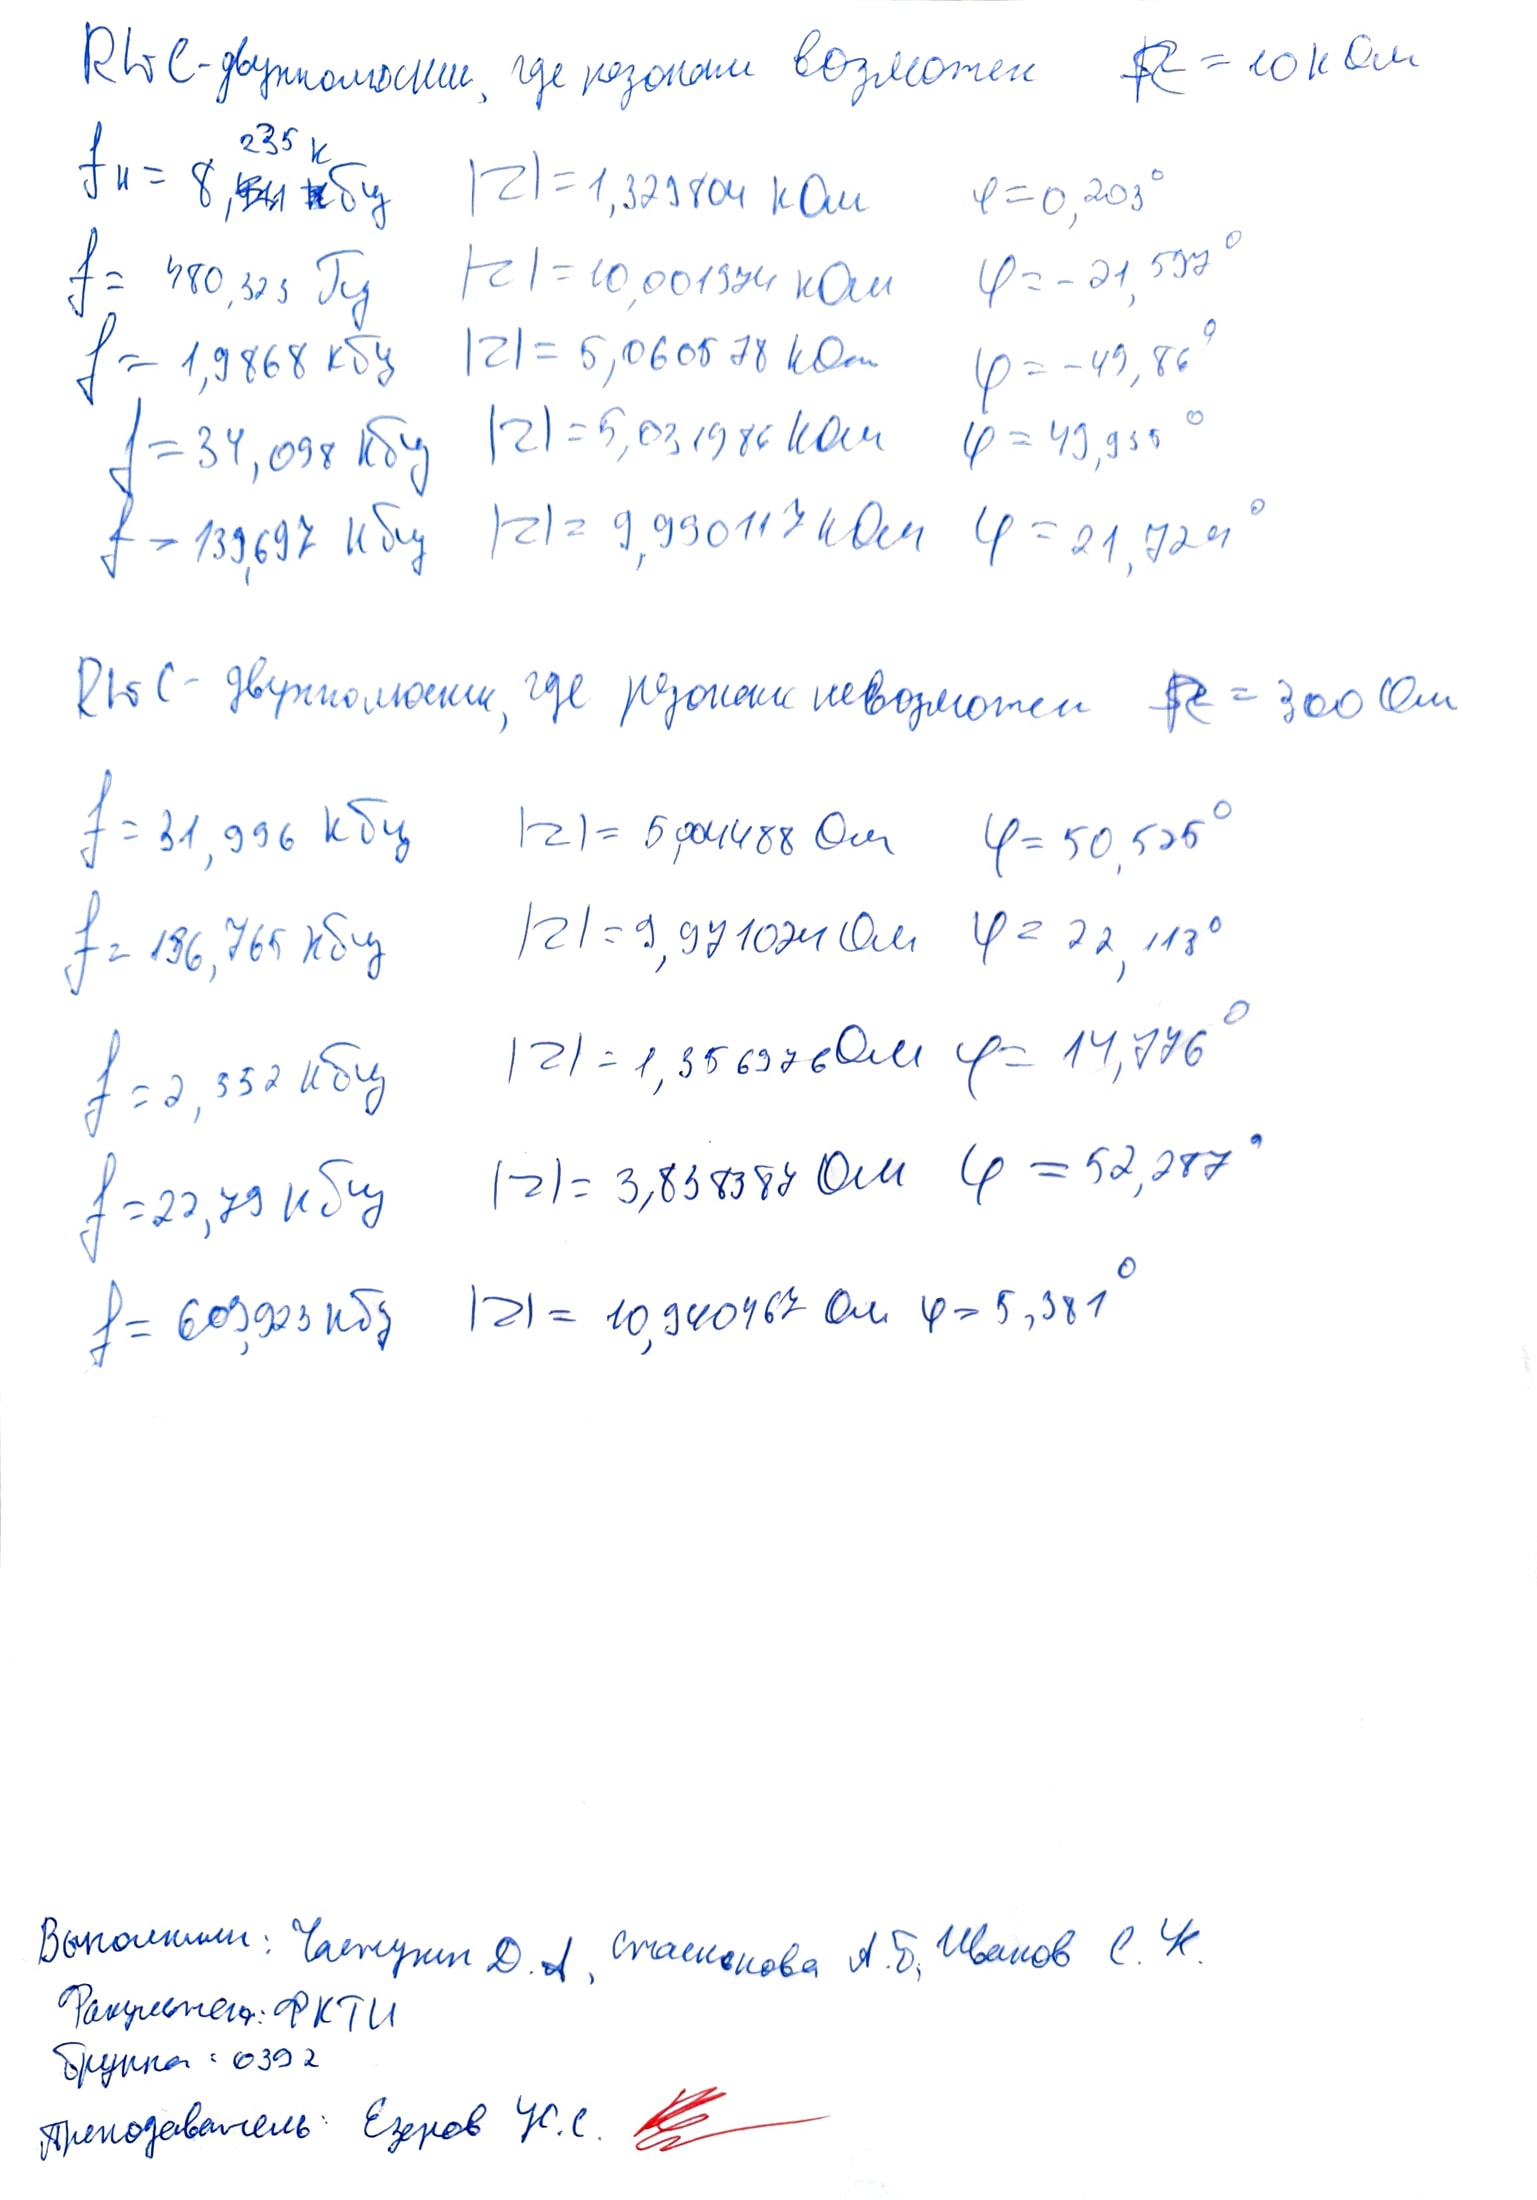 RLrC-двухполюсник, где резонанс возможен R = 10 кОм
fн = 8,235 кГц |Z| = 1,329804 кОм φ = 0,203°
f = 480,323 Гц |Z| = 10,001974 кОм φ = -21,597°
f = 1,9868 кГц |Z| = 5,060578 кОм φ = -49,86°
f = 34,098 кГц |Z| = 5,031986 кОм φ = 49,935°
f = 139,697 кГц |Z| = 9,990117 кОм φ = 21,724°
RLrC - двухполюсник, где резонанс невозможен R = 300 Ом
f = 31,996 кГц |Z| = 5,004488 Ом φ = 50,525°
f = 196,765 кГц |Z| = 9,971024 Ом φ = 22,113°
f = 2,352 кГц |Z| = 1,356976 Ом φ = 14,776°
f = 22,79 кГц |Z| = 3,838387 Ом φ = 52,287°
f = 609,923 кГц |Z| = 10,940467 Ом φ = 5,381°
Выполнили: Частухин Д.А, А.Б, Иванов С.
Факультет: ФКТИ
Группа: 0392
Преподаватель: Езеров К.С.